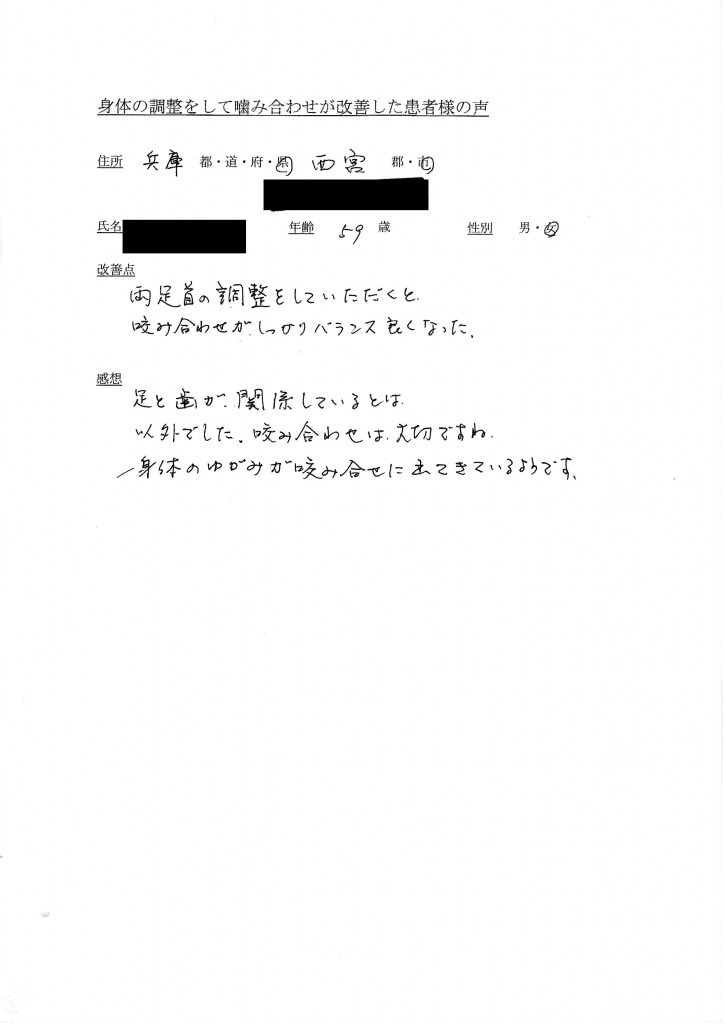 身体の調整をして噛み合わせが改善した患者様の声
住所 兵庫 都・道・府・県 西宮 郡・市
氏名 年齢 59 歳 性別 男・女
改善点
両足首の調整をしていただくと、
咬み合わせがしっかりバランス良くなった。
感想
足と歯が、関係しているとは
以外でした。咬み合わせは、大切ですね。
身体のゆがみが咬み合せに出てきているようです。